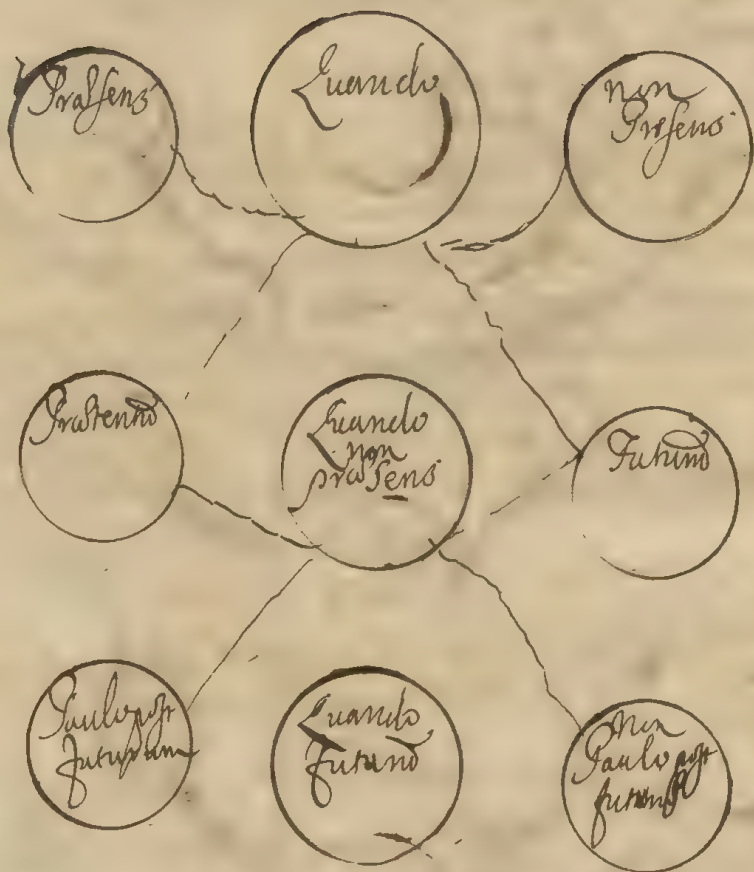 Præsens
Quando
non
Præsens
Præteritũ
Quando
non
præsens
Futurũ
Paulo post
futurum
Quando
futurũ
Non
Paulo post
futurũ